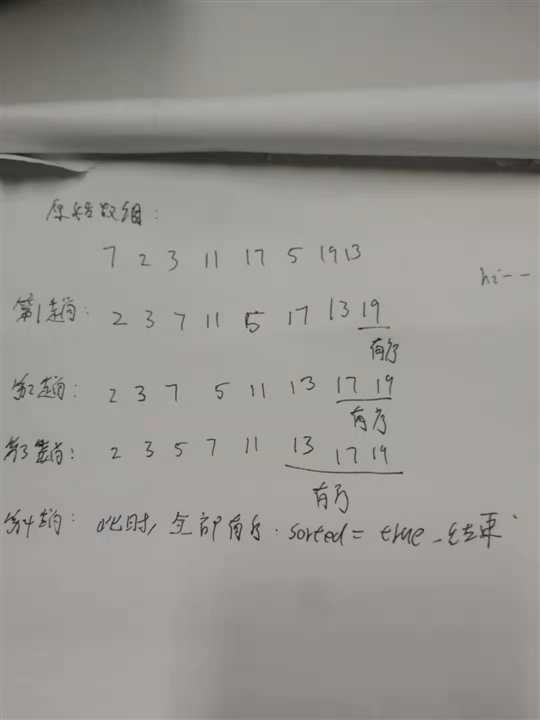 原始数组：
7 2 3 11 17 5 19 13
hi--
第1趟： 2 3 7 11 5 17 13 19
有序
第2趟： 2 3 7 5 11 13 17 19
有序
第3趟： 2 3 5 7 11 13 17 19
有序
第4趟： 此时, 全部有序. sorted = true 结束